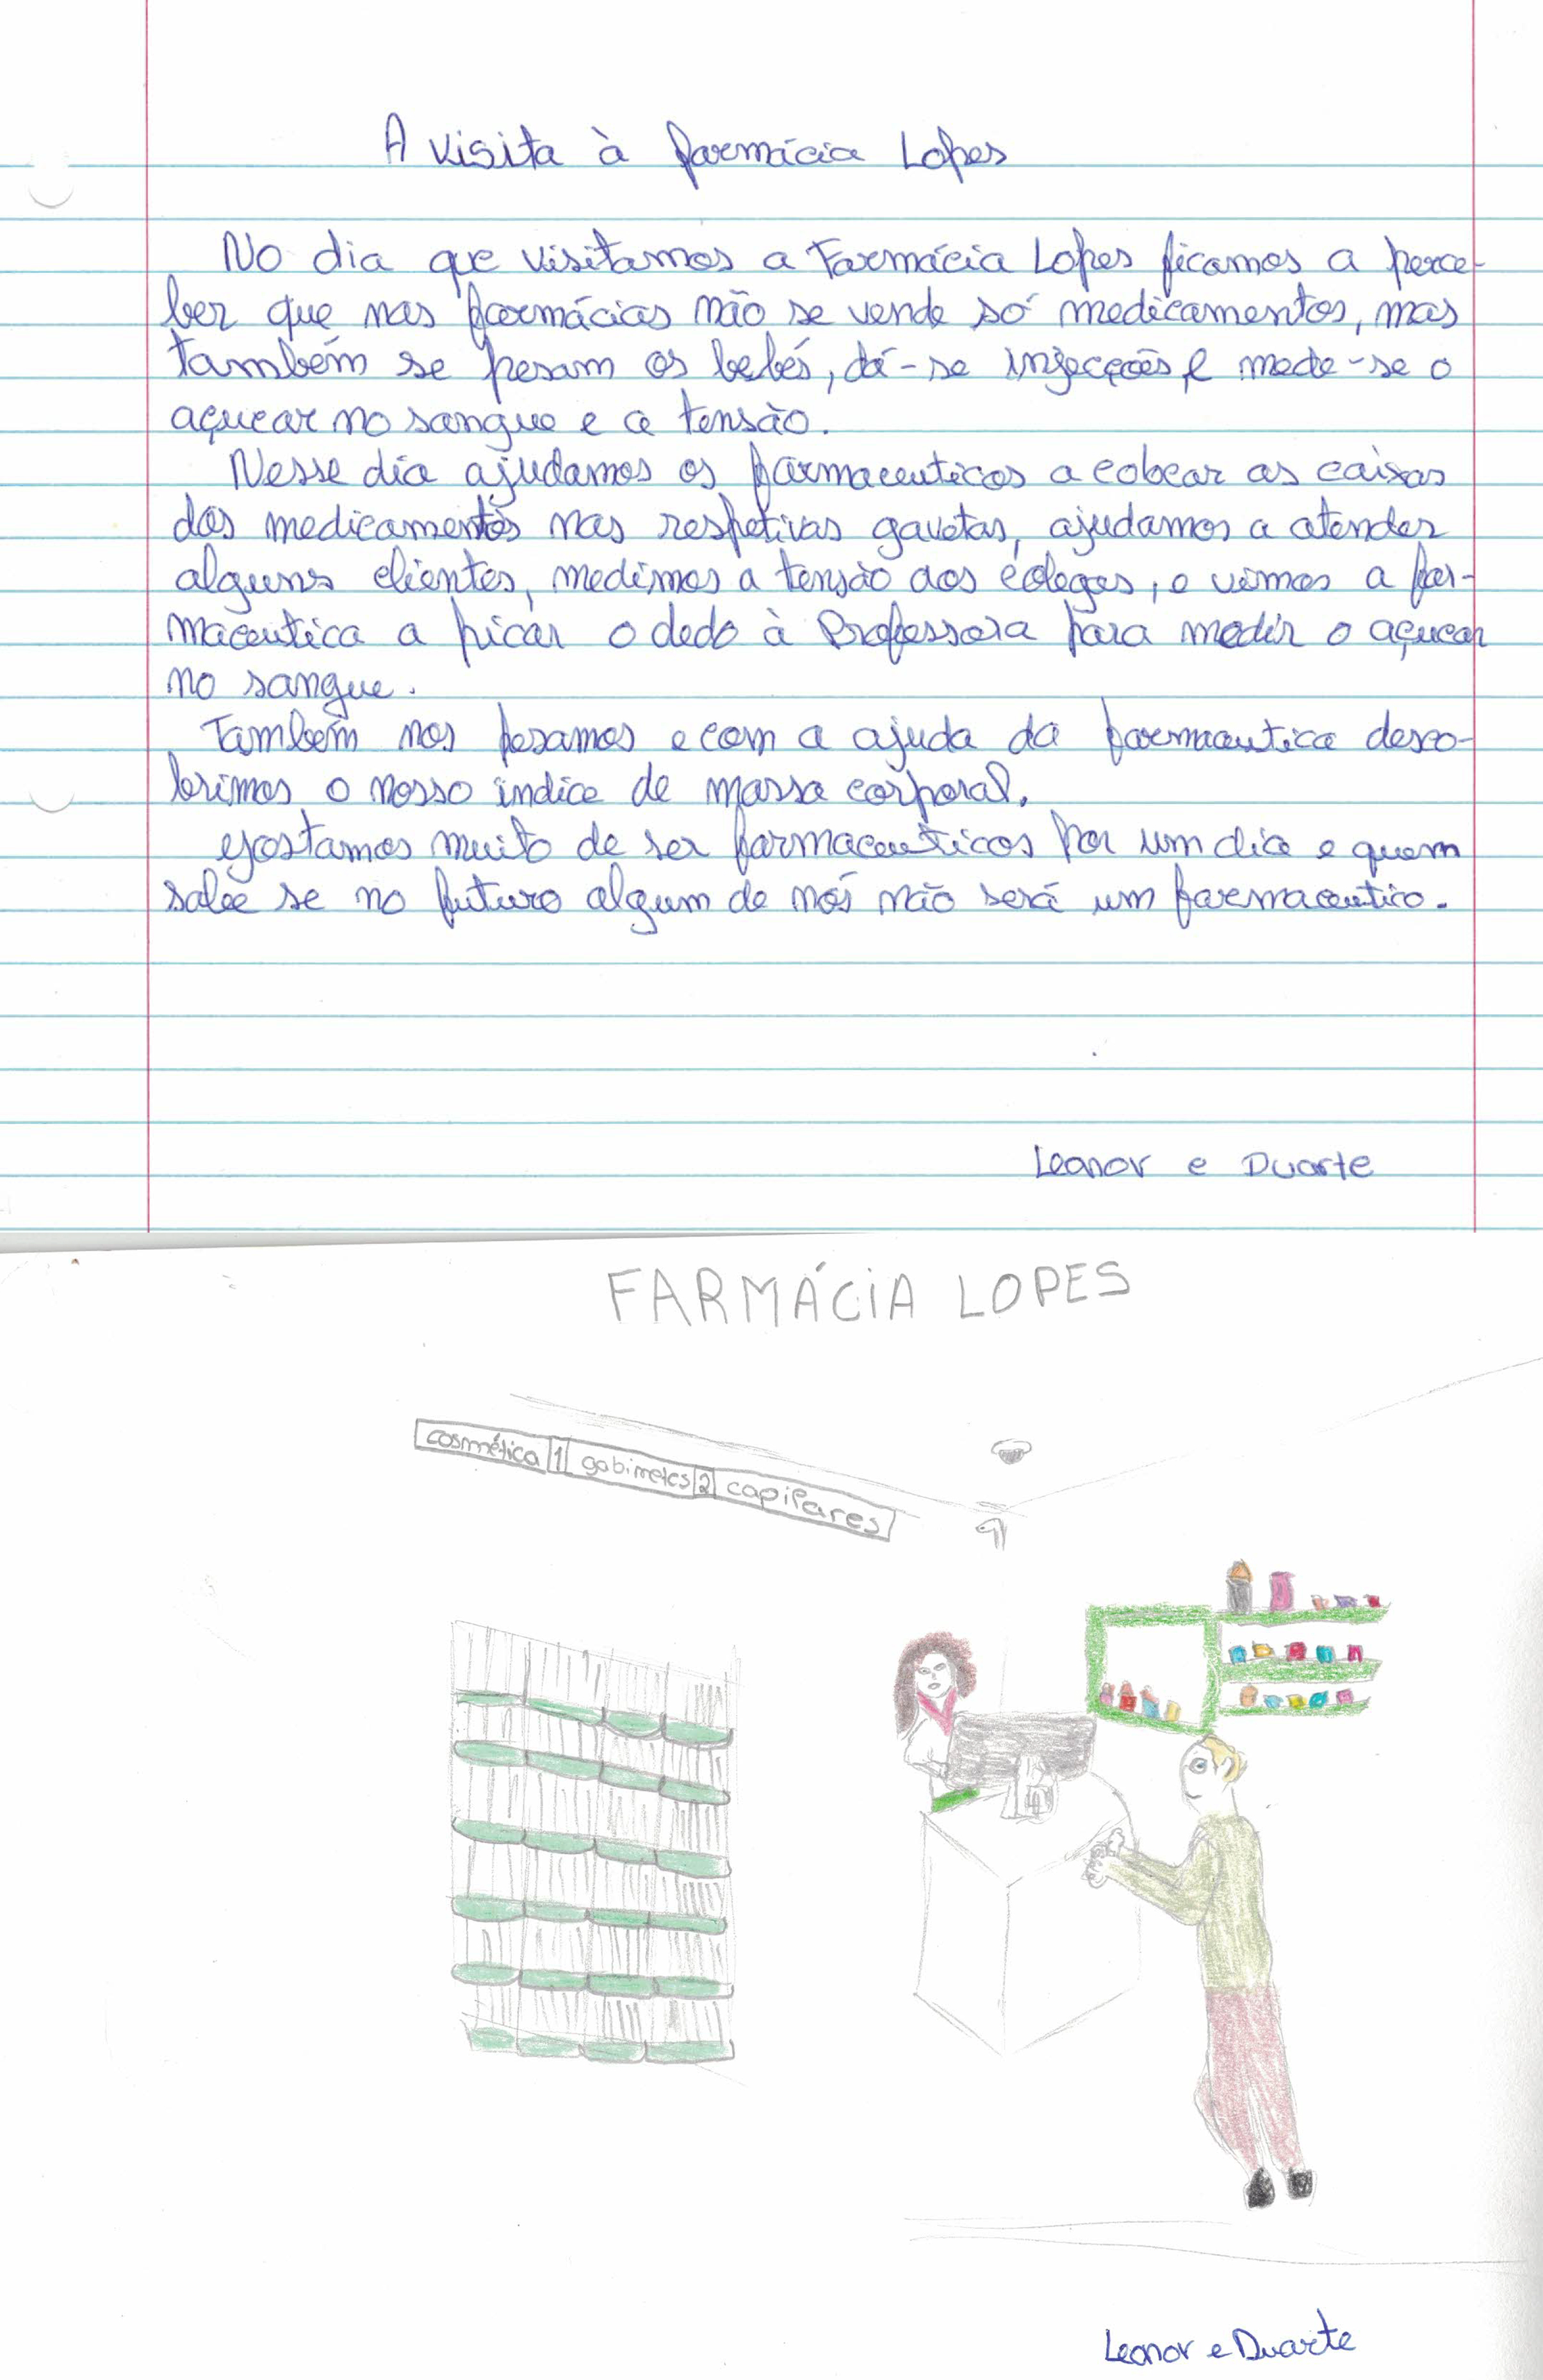 A visita à farmácia Lopes
No dia que visitamos a Farmácia Lopes ficamos a perce-
ber que nas farmácias não se vende só medicamentos, mas
também se pesam os bebés, dá-se injecções e mede-se o
açucar no sangue e a tensão.
Nesse dia ajudamos os farmaceuticos a colocar as caixas
dos medicamentos nas respetivas gavetas, ajudamos a atender
alguns clientes, medimos a tensão aos colegas, e vimos a far-
maceutica a picar o dedo à Professora para medir o açucar
no sangue.
Também nos pesamos e com a ajuda da farmaceutica desco-
brimos o nosso indice de massa corporal.
Gostamos muito de ser farmaceuticos por um dia e quem
sabe se no futuro algum de nós não será um farmaceutico.
Leonor e Duarte
FARMÁCIA LOPES
cosmética 1 gabinetes 2 capilares
Leonor e Duarte